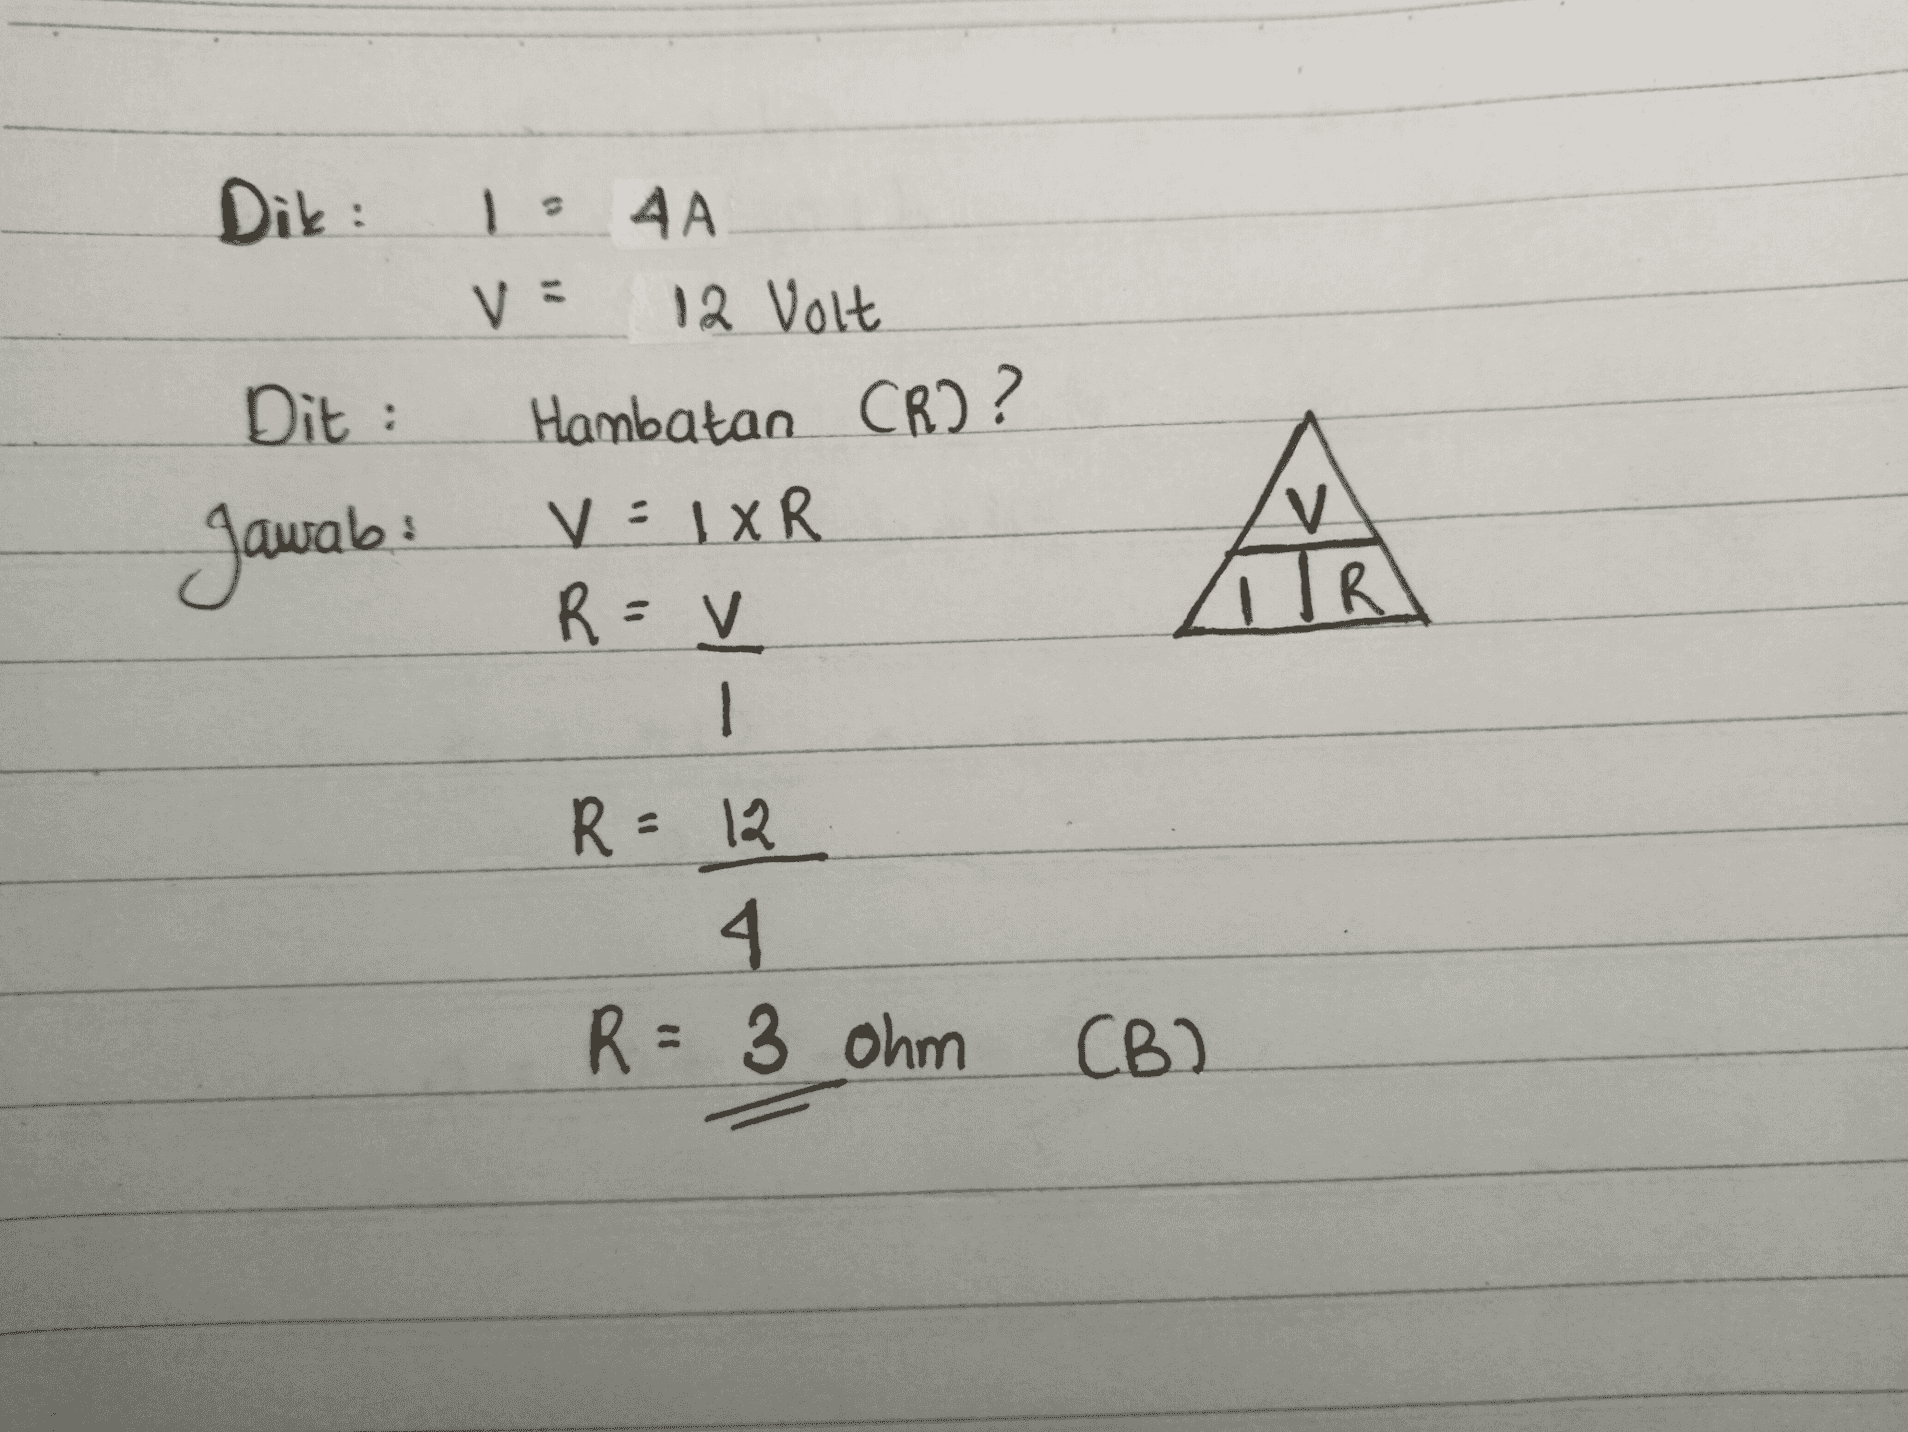 Dik : I = 4A
V = 12 Volt
Dit : Hambatan (R) ?
Jawab : V = I x R
R = V
I
V
I R
R = 12
4
R = 3 ohm (B)